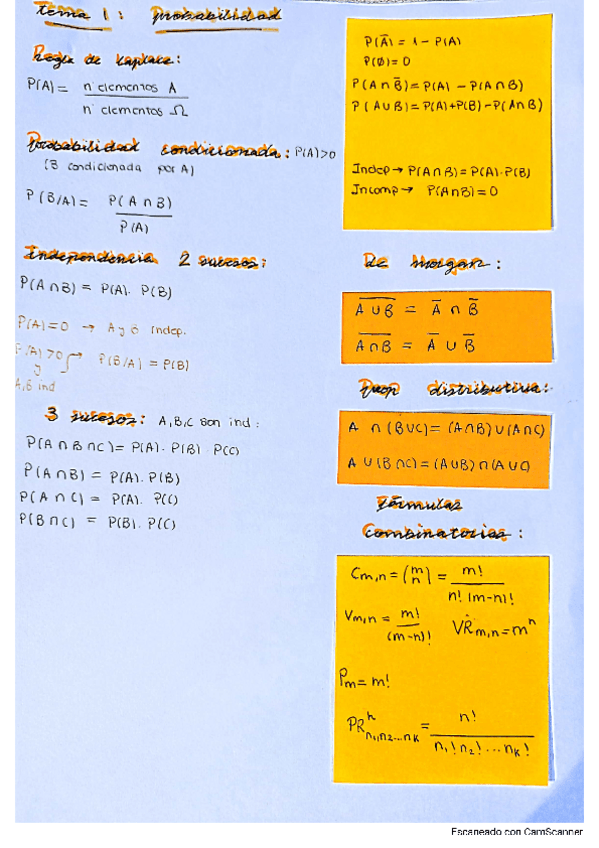 Tema 1: Probabilidad
Regla de Laplace:
P(A) = n elementos A
n elementos Ω
Probabilidad condicionada: P(A)>0
(B condicionada por A)
P(B/A) = P(A∩B)
P(A)
Independencia 2 sucesos:
P(A∩B) = P(A). P(B)
P(A)=0 → A y B indep.
P(A)>0
y → P(B/A) = P(B)
A,B ind
3 sucesos: A,B,C son ind:
P(A∩B∩C) = P(A). P(B) P(C)
P(A∩B) = P(A). P(B)
P(A∩C) = P(A). P(C)
P(B∩C) = P(B). P(C)
P(A̅) = 1 - P(A)
P(∅) = 0
P(A∩B̅) = P(A) - P(A∩B)
P(A∪B) = P(A)+P(B)-P(A∩B)
Indep → P(A∩B)=P(A).P(B)
Incomp → P(A∩B)=0
De Morgan:
A̅∪̅B̅ = A̅ ∩ B̅
A̅∩̅B̅ = A̅ ∪ B̅
Prop distributiva:
A ∩ (B∪C) = (A∩B)∪(A∩C)
A∪(B∩C)=(A∪B)∩(A∪C)
Fórmulas
Combinatorias:
Cm,n = (m n) = m!
n! (m-n)!
Vm,n = m!
(m-n)!
VRm,n = mⁿ
Pm = m!
PRⁿ n₁,n₂...nₖ = n!
n₁! n₂! ... nₖ!
Escaneado con CamScanner